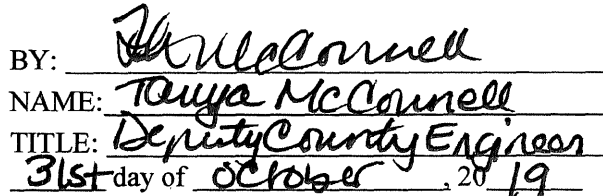 BY: TMcConnell
NAME: Tanya McConnell
TITLE: Deputy County Engineer
31st day of October, 2019